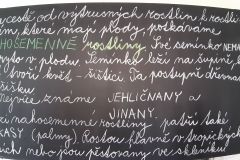 cestě od výtrusných rostlin k rostli
ním, které mají plody, potkáváme
HOSEMENNÉ rostliny. Své semínko NEMA
ryto v plodu. Semínko leží na šupině, k
tvoří květ - šištici. Ta postupně dřevna
šišku.
Nejvíce známe JEHLIČNANY a
JINANY.
zi nahosemenné rostliny patří také
KASY (palmy). Rostou hlavně v tropických
ích nebo jsou pěstovány ve skleníku